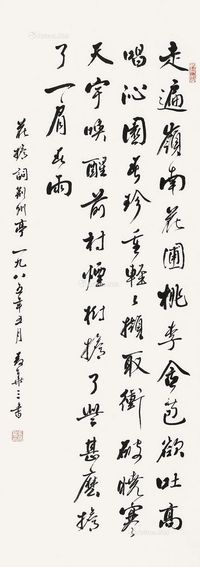 走遍嶺南花圃桃李含苞欲吐高
唱沁園春珍重輕輕擷取衝破曉寒
天宇喚醒前村煙樹擔了些甚麼擔
了一肩春雨
花擔詞荊州亭一九八五年五月